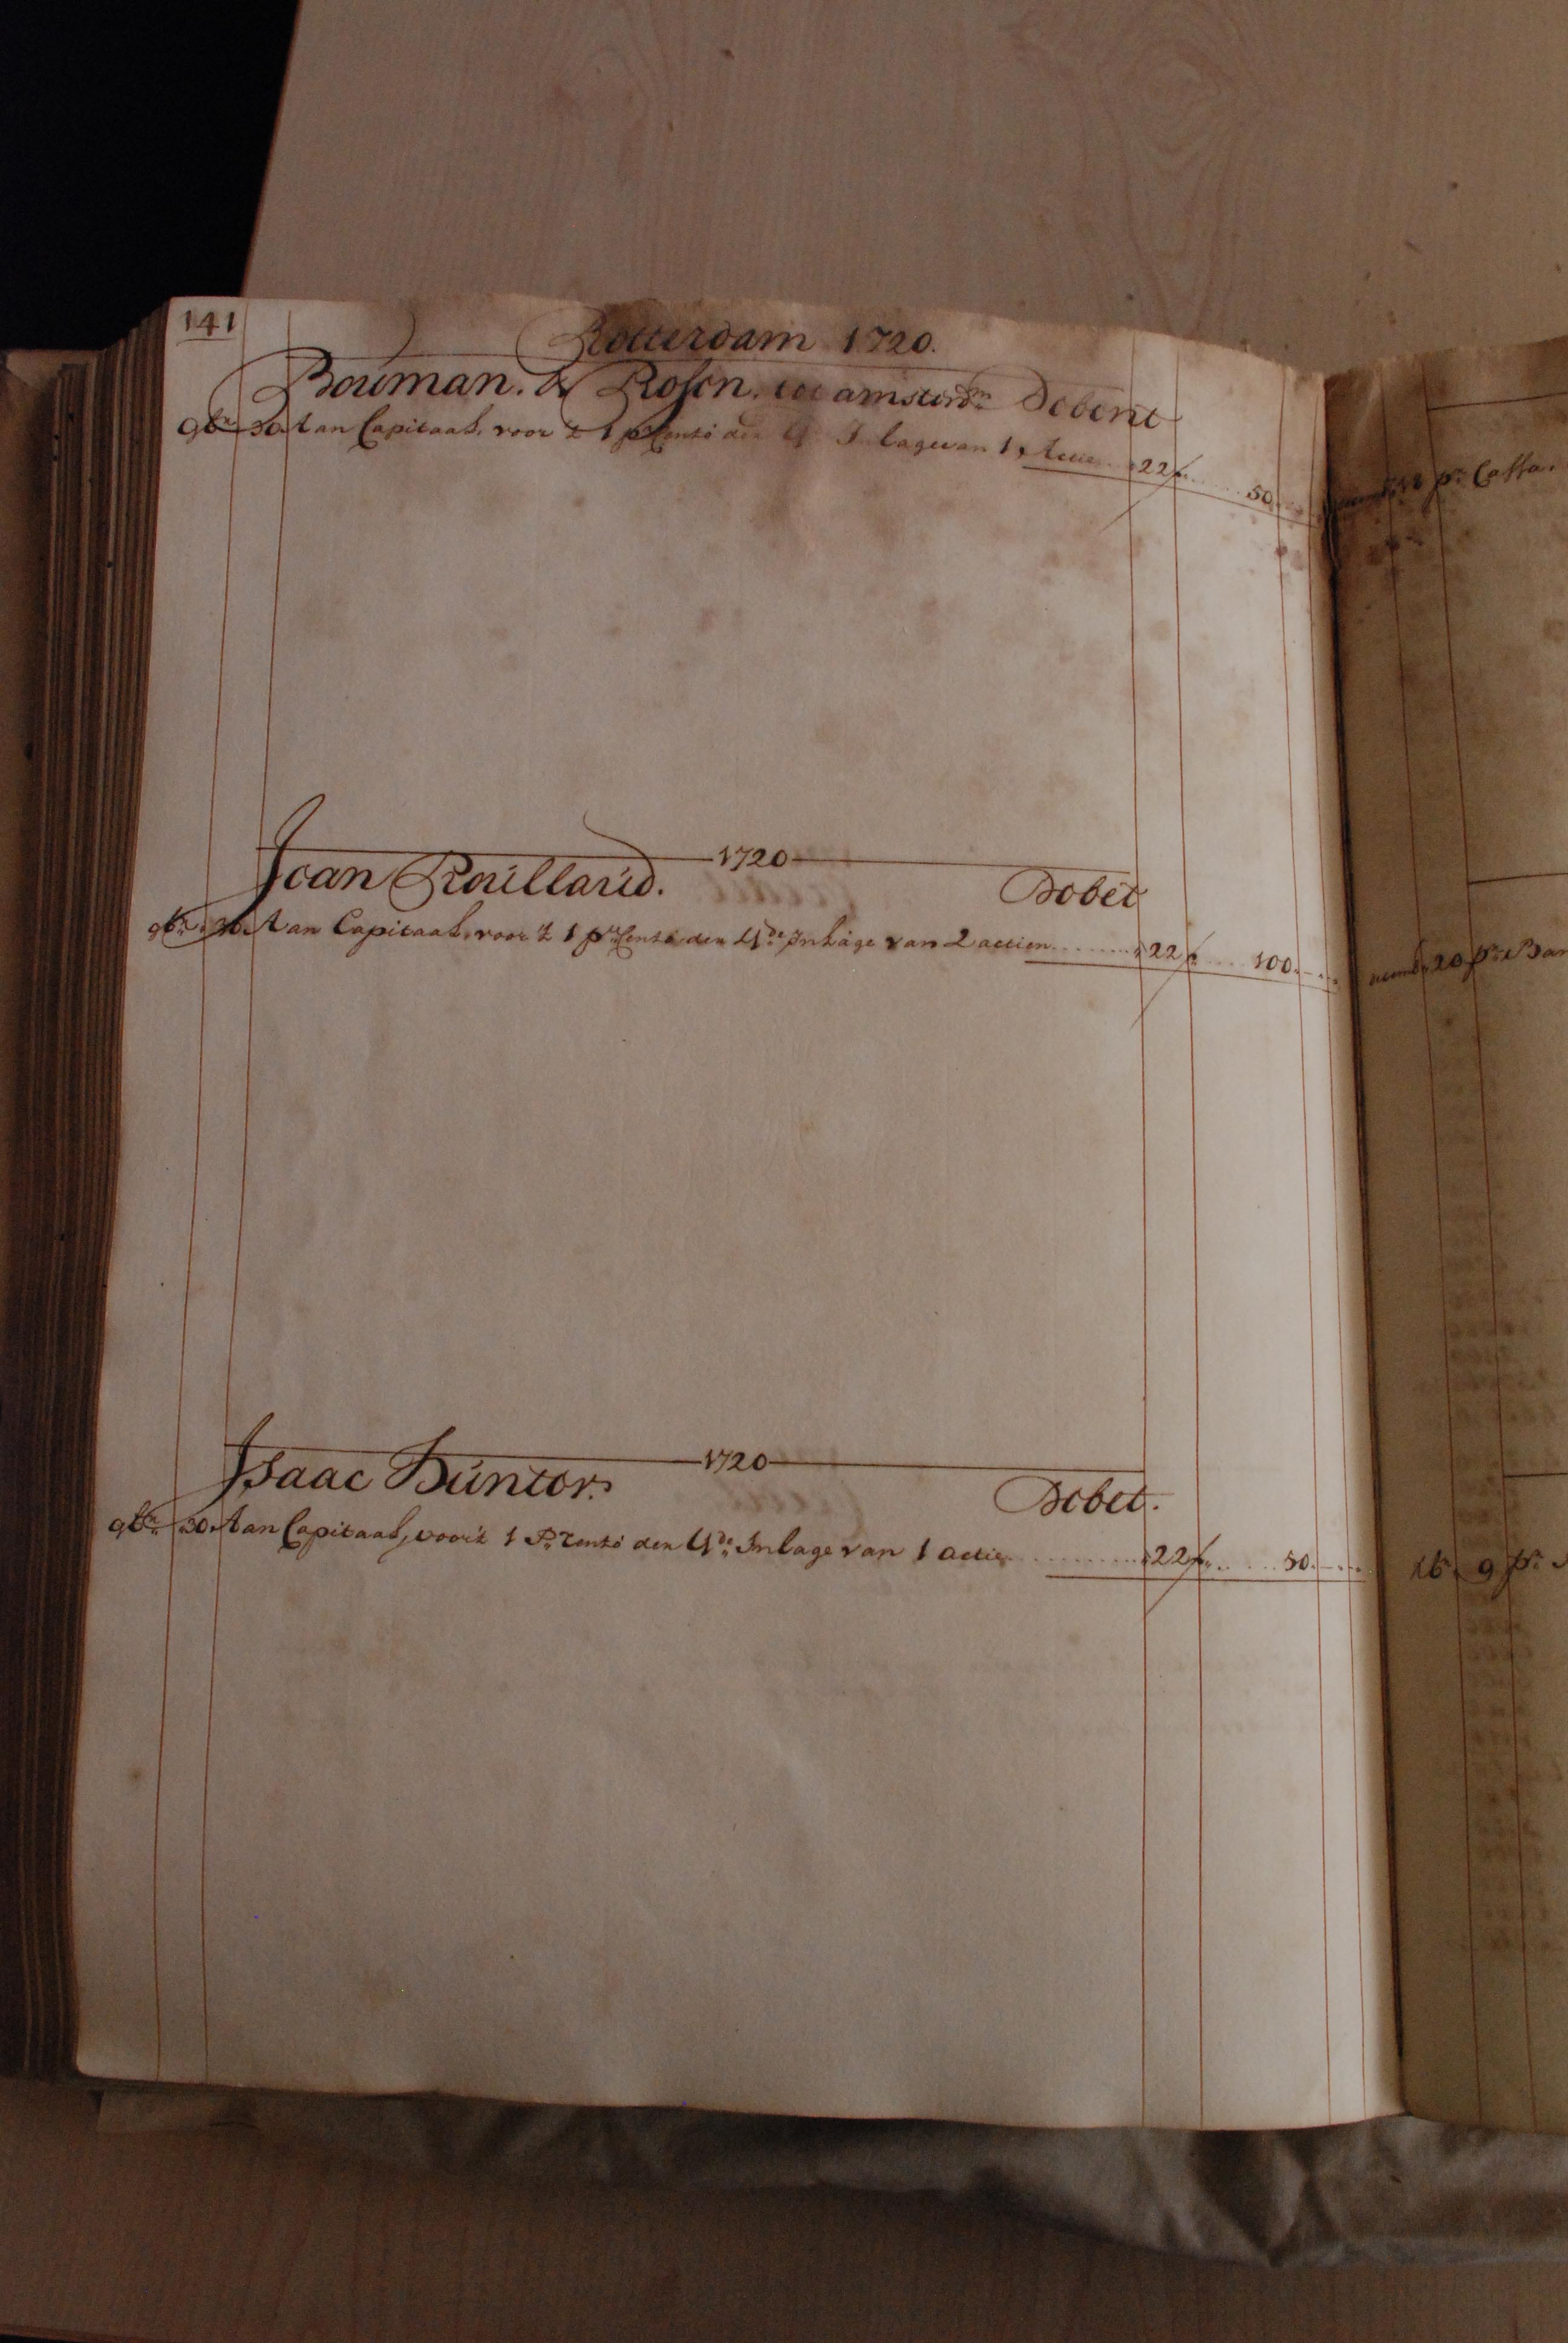 141
Rotterdam 1720.
Bouman. & Rosen. tot amsterdm Debent
9br 30 Aan Capitaal, voor 't 1 pr Cento den 4 Inlage van 1 Actie 22 50
1720
Jean Rouillard. Debet
9br 30 Aan Capitaal, voor 't 1 pr Cento den 4de Inlage van 2 actien 22 100
1720
Isaac Huntor. Debet.
9br 30 Aan Capitaal, voor 't 1 Pr Cento den 4de Inlage van 1 actie 22 50
pr Cassa.
20 pr Ban
9 pr